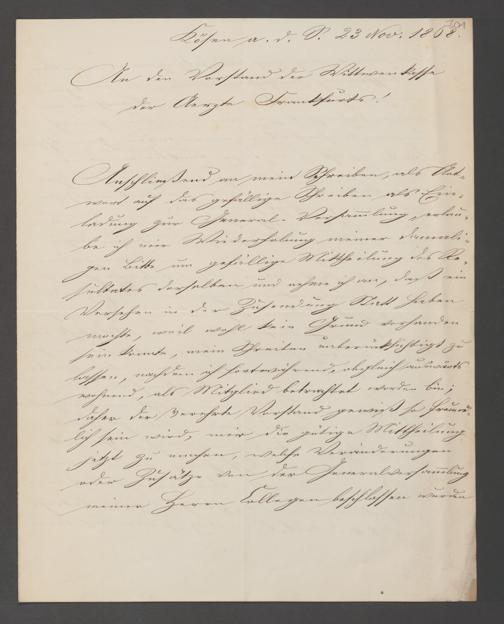 Kösen a. d. S. 23 Nov. 1868.
An den Vorstand der Wittwenkasse
der Aerzte Frankfurts!
Anschließend an mein Schreiben, als Ant-
wort auf das gefällige Schreiben als Ein-
ladung zur General-Versammlung, erlau-
be ich mir Wiederholung meiner damali-
gen Bitte um gefällige Mittheilung des Re-
sultates derselben und nehme ich an, daß ein
Versehen in der Zusendung statt haben
mochte, weil wohl kein Grund vorhanden
sein konnte, mein Schreiben unberücksichtigt zu
lassen, nachdem ich fortwährend, obgleich auswärts
wohnend, als Mitglied betrachtet worden bin;
daher der verehrte Vorstand gewiß so freund-
lich sein wird, mir die gütige Mittheilung
jetzt zu machen, welche Veränderungen
oder Zusätze von der Generalversammlung
meiner Herren Collegen beschlossen wurden